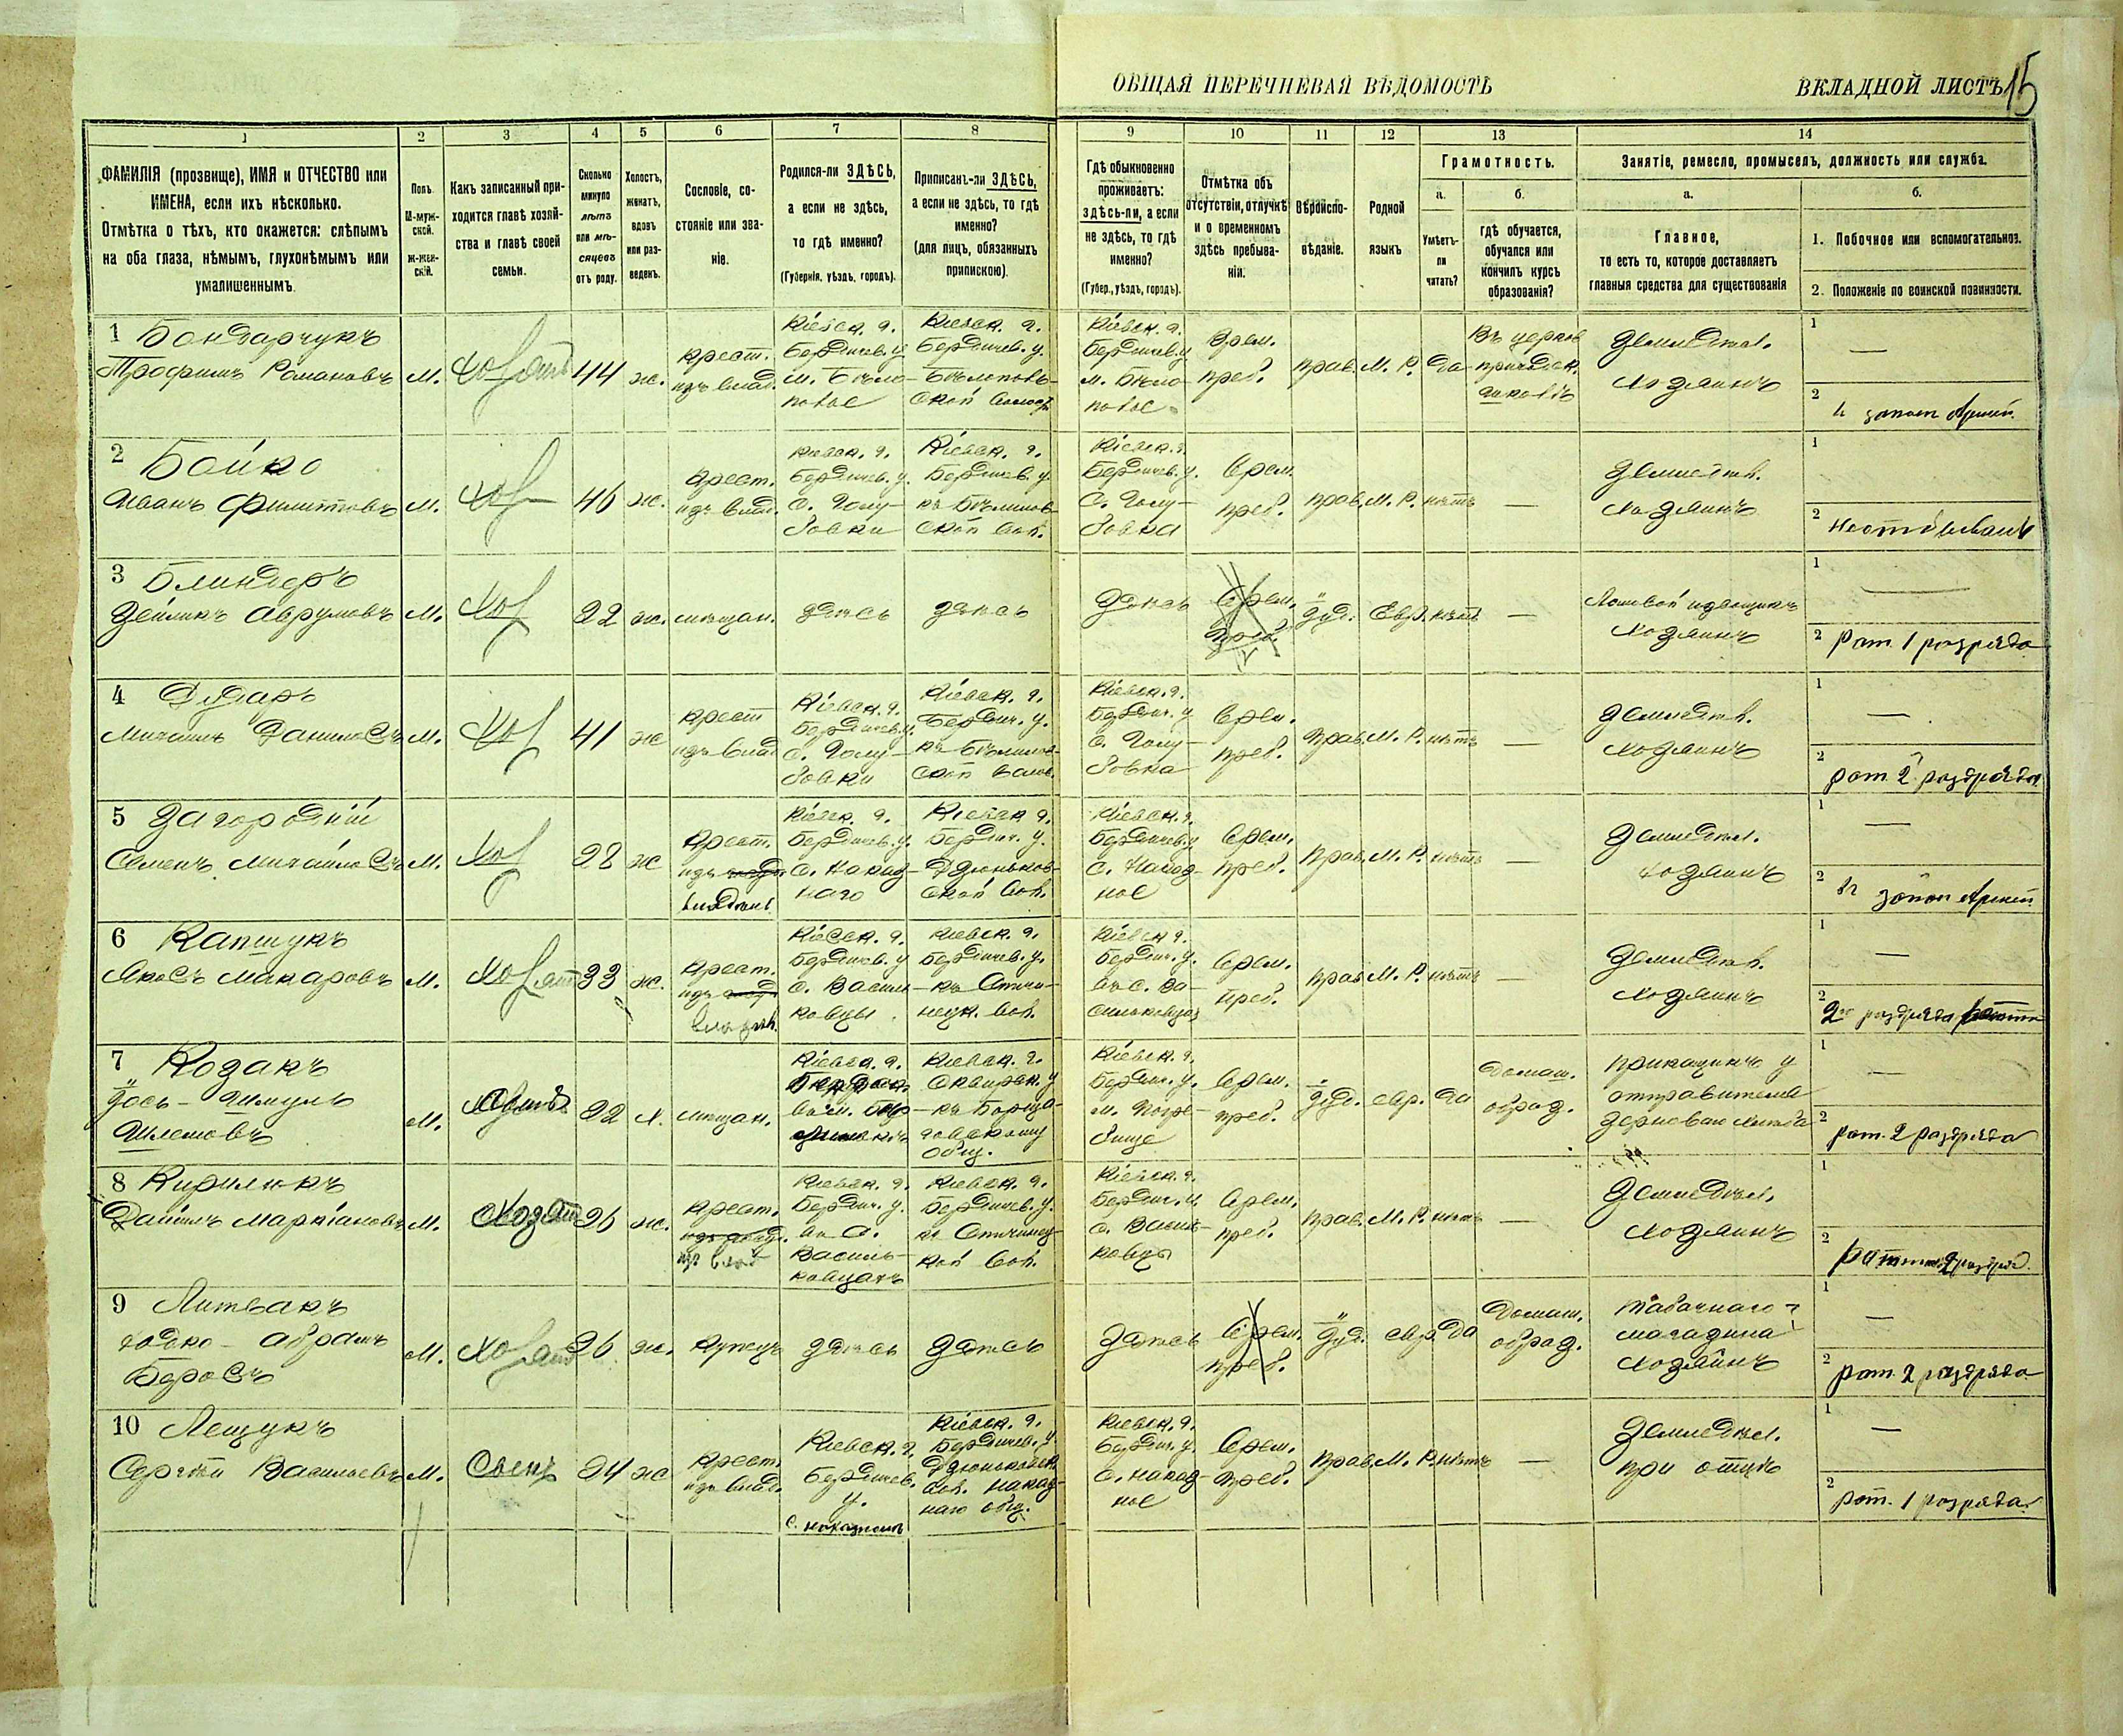 ОБЩАЯ ПЕРЕЧНЕВАЯ ВѢДОМОСТЬ
ВКЛАДНОЙ ЛИСТЪ 15
1
2
3
4
5
6
7
8
9
10
11
12
13
14
ФАМИЛІЯ (прозвище), ИМЯ и ОТЧЕСТВО или
ИМЕНА, если ихъ нѣсколько.
Отмѣтка о тѣхъ, кто окажется: слѣпымъ
на оба глаза, нѣмымъ, глухонѣмымъ или
умалишеннымъ.
Полъ.
М-муж-
ской.
ж-жен-
скій.
Какъ записанный при-
ходится главѣ хозяй-
ства и главѣ своей
семьи.
Сколько
минуло
лѣтъ
или мѣ-
сяцевъ
отъ роду.
Холостъ,
женатъ,
вдовъ
или раз-
веденъ.
Сословіе, со-
стояніе или зва-
ніе.
Родился-ли ЗДѢСЬ,
а если не здѣсь,
то гдѣ именно?
(Губернія, уѣздъ, городъ).
Приписанъ-ли ЗДѢСЬ,
а если не здѣсь, то гдѣ
именно?
(для лицъ, обязанныхъ
припискою).
Гдѣ обыкновенно
проживаетъ:
здѣсь-ли, а если
не здѣсь, то гдѣ
именно?
(Губер., уѣздъ, городъ).
Отмѣтка объ
отсутствіи, отлучкѣ
и о временномъ
здѣсь пребыва-
ніи.
Вѣроиспо-
вѣданіе.
Родной
языкъ
Грамотность.
а.
Умѣетъ-
ли
читать?
б.
гдѣ обучается,
обучался или
кончилъ курсъ
образованія?
Занятіе, ремесло, промыселъ, должность или служба.
а.
Главное,
то есть то, которое доставляетъ
главныя средства для существованія
б.
1. Побочное или вспомогательное.
2. Положеніе по воинской повинности.
1 Бондарчукъ
Трофимъ Романовъ
м.
44
ж.
крест.
изъ влад.
Кіевск. г.
Бердичев. у.
м. Бѣло-
полье
Кіевск. г.
Бердичев. у.
Бѣлополь-
ской
Кіевск. г.
Бердичев. у.
м. Бѣло
полье
Врем.
преб.
прав.
М. Р.
да
Въ церков
приходск.
Земледѣл.
хозяинъ
1 —
2 запасн. Арміи
2 Бойко
Иванъ Филиповъ
м.
Хоз
46
ж.
крест.
изъ влад.
Кіевск. г.
Бердичев. у.
с. Голу-
бовки
Кіевск. г.
Бердичев. у.
ской вол.
Кіевск. г.
Бердичев. у.
с. Голу-
бовка
Врем.
преб.
прав.
М. Р.
нѣтъ
—
Земледѣл.
хозяинъ
1
2
3 Блиндеръ
Зейликъ Аврумовъ
м.
Хоз
22
ж.
мѣщан.
здѣсь
здѣсь
Здѣсь
Врем.
преб.
Іуд.
Евр.
нѣтъ
—
извощикъ
хозяинъ
1 —
2 рат. 1 разряда
4 Дударь
Михаилъ Даниловъ
м.
Хоз
41
ж
крест
изъ влад
Кіевск. г.
Бердичев. у.
с. Голу-
бовки
Кіевск. г.
Бердич. у.
ской волос.
Кіевск. г.
Бердич. у
с. Голу-
бовка
Врем.
преб.
прав.
М. Р.
нѣтъ
—
Земледѣл.
хозяинъ
1 —
2 рат 2 разряда
5 Загородній
Семенъ Михайловъ
м.
Хоз
28
ж
крест.
изъ
владѣл
Кіевск. г.
Бердичев. у.
с. Наказ-
наго
Кіевск г.
Бердич. у.
Дзюньков-
ской вол.
Кіевск. г.
Бердичев. у
с. Наказ-
ное
Врем.
преб.
прав.
М. Р.
нѣтъ
—
Земледѣл.
хозяинъ
1 —
2 запас Арміи
6 Капшукъ
Яковъ Макаровъ
м.
33
ж.
крест.
изъ
владѣл.
Кіевск. г.
Бердичев. у
с. Василь-
ковцы
Кіевск. г.
Бердичев. у.
вол.
Кіевск г.
Бердич. у.
въ с. Ва-
сильковцах
Врем.
преб.
прав
М. Р.
нѣтъ
—
Земледѣл.
хозяинъ
1 —
2 2го разряда
7 Козакъ
Іось-Шмуль
Шлемовъ
м.
22
х.
мѣщан.
Кіевск. г.
Кіевск. г.
Сквирск. у
общ.
Кіевск. г.
Бердич. у.
м. Погре-
бище
Врем.
преб.
Іуд.
евр.
да
Домаш.
образ.
приказчикъ у
отправителя
зерноваго хлѣба
1 —
2 рат. 2 разряда
8 Кириликъ
Даніилъ Маркіановъ
м.
26
ж.
крест.
изъ влад
Кіевск. г.
Бердич. у.
въ с.
Василь-
ковцахъ
Кіевск. г.
Бердичев. у.
кой вол.
Кіевск. г.
Бердич. у.
с. Василь-
ковцы
Врем.
преб.
прав.
М. Р.
нѣтъ
—
Земледѣл.
хозяинъ
1
2
9 Литвакъ
Іойно-Абрамъ
Беровъ
м.
26
ж.
купецъ
здѣсь
здѣсь
Здѣсь
Врем.
преб.
Іуд.
евр.
да
Домаш.
образ.
табачнаго
магазина
хозяинъ
1 —
2 рат. 2 разряда
10 Лещукъ
Сергѣй Васильевъ
м.
Сынъ
24
ж
крест.
изъ влад.
Кіевск. г.
Бердичев.
у.
с. наказномъ
Кіевск. г.
Бердичев. у.
Дзюньковск
вол. Наказ-
наго общ.
Кіевск. г.
Бердич. у.
с. Наказ
ное
Врем.
преб.
прав.
М. Р.
нѣтъ
—
Земледѣл.
при отцѣ
1 —
2 рат. 1 разряда